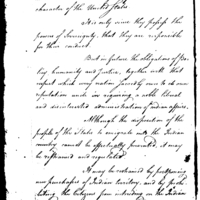 character of the United States
It is only since they possess the
powers of Sovereignty, that they are responsible
for their conduct.
But in future the obligations of
humanity and Justice, together with that
respect which every nation sacredly owes to its own
reputation unite in requiring a noble liberal
and disinterested administration of indian affairs.
Although the disposition of the
people of the States to emigrate into the Indian
country cannot be effectually prevented, it may
be restrained and regulated.
It may be restrained by postponing
new purchases of Indian territory, and by prohibi
ting the Citizens from intruding on the Indian